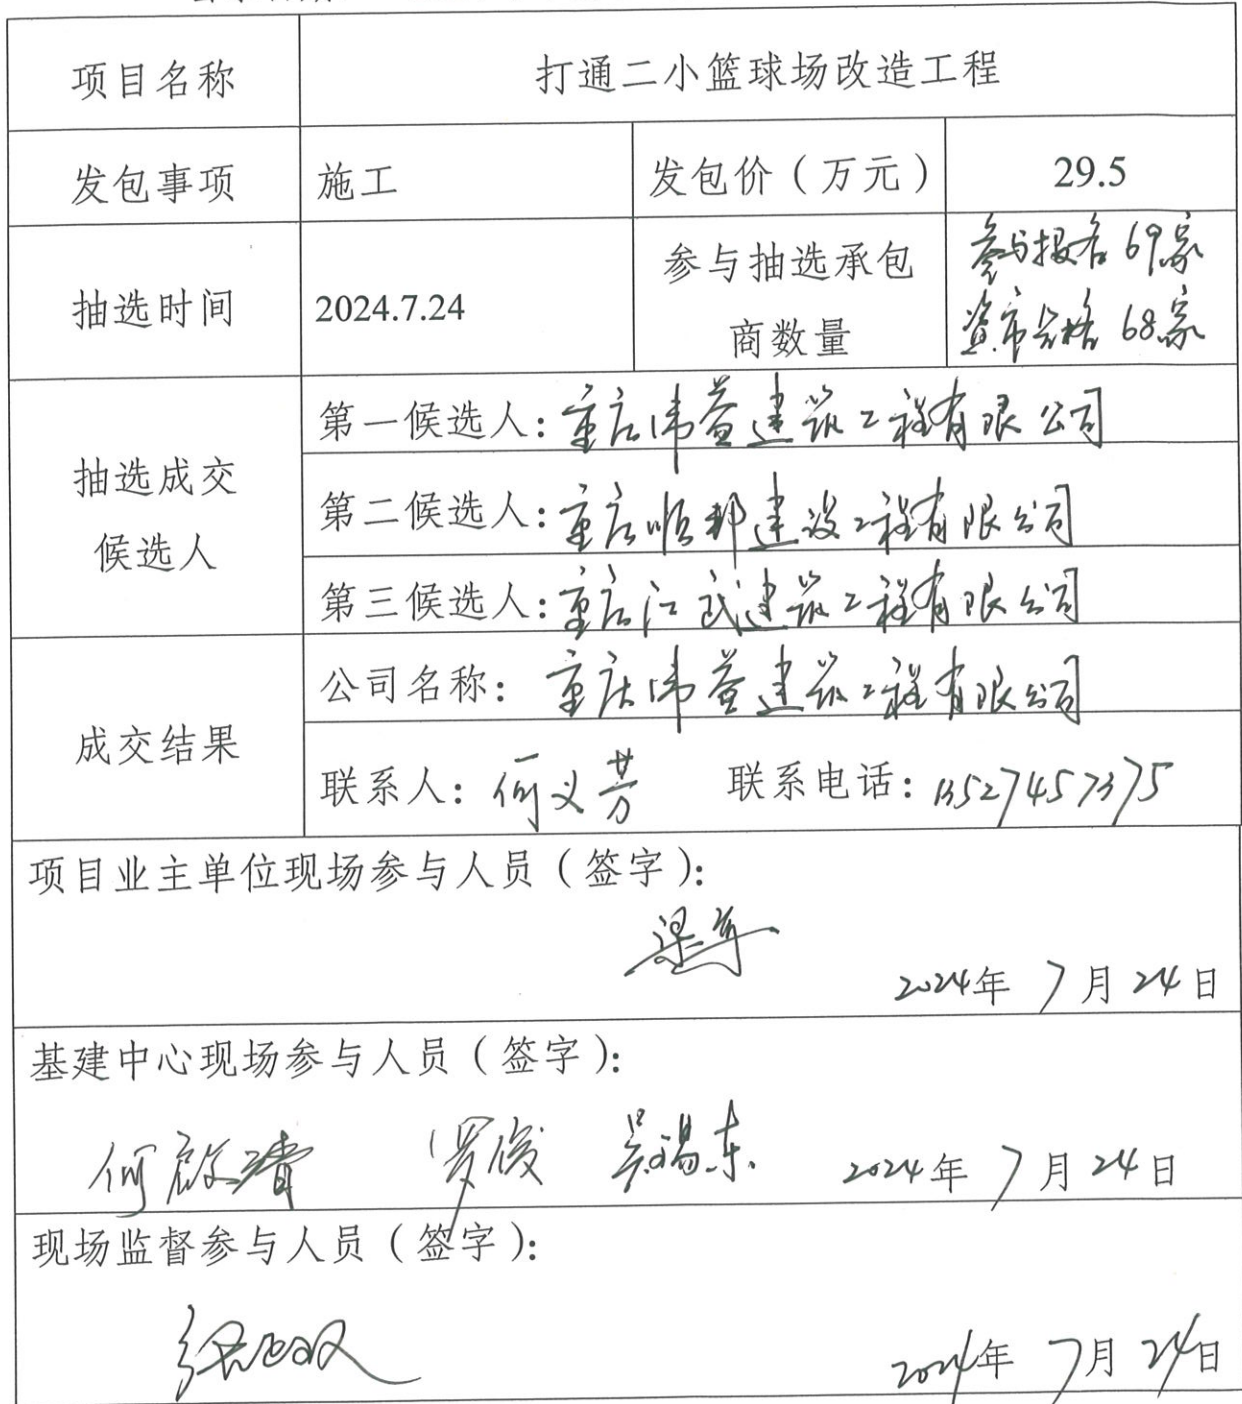 项目名称 打通二小篮球场改造工程
发包事项 施工 发包价（万元） 29.5
抽选时间 2024.7.24 参与抽选承包商数量 参与报名69家
资审合格68家
抽选成交候选人
第一候选人：重庆伟益建筑工程有限公司
第二候选人：重庆顺邦建设工程有限公司
第三候选人：重庆江武建筑工程有限公司
成交结果
公司名称：重庆伟益建筑工程有限公司
联系人：何义芳 联系电话：13527457375
项目业主单位现场参与人员（签字）：
2024年7月24日
基建中心现场参与人员（签字）：
罗俊 吴锡东 2024年7月24日
现场监督参与人员（签字）：
2024年7月24日